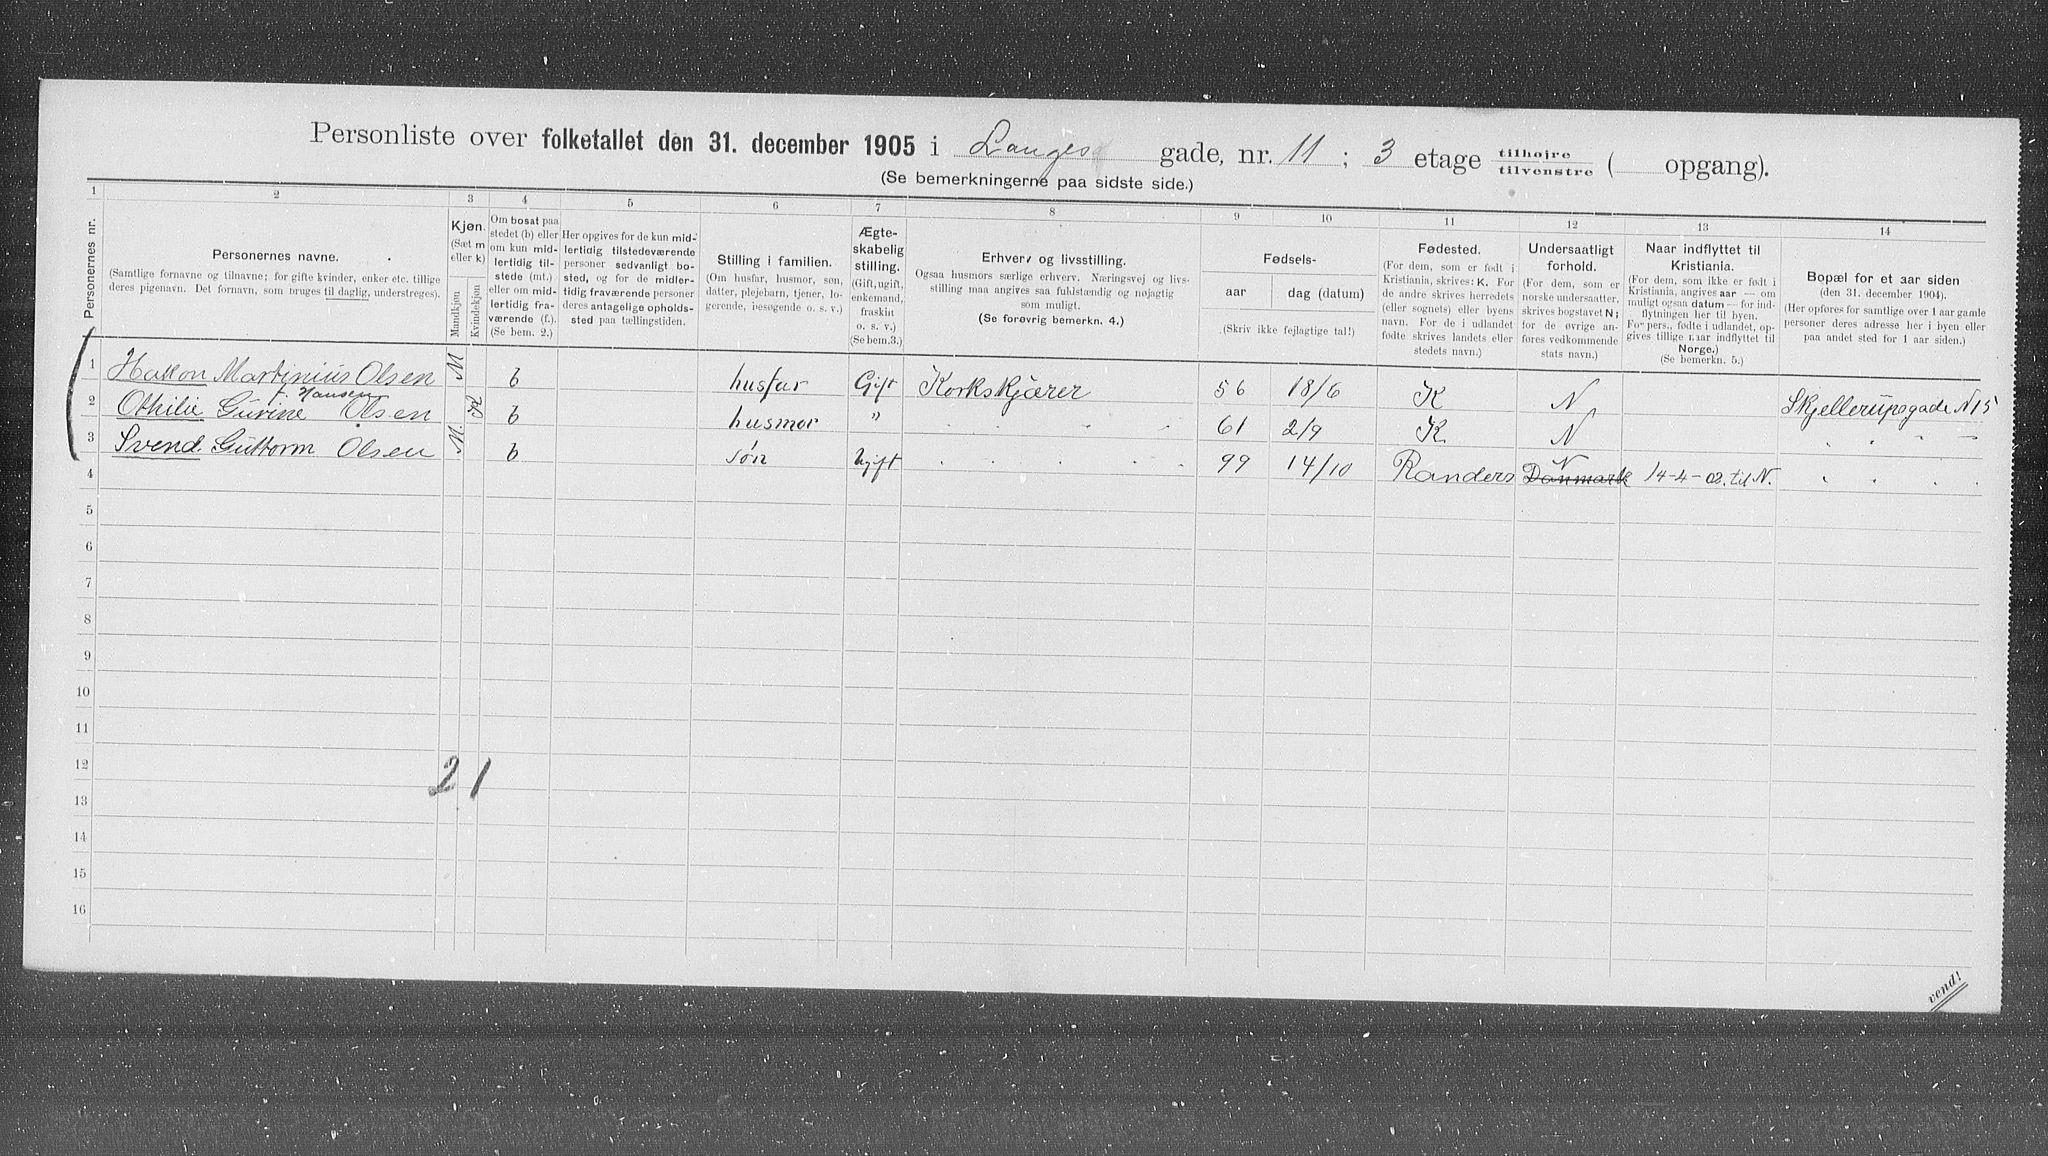 Personliste over folketallet den 31. december 1905 i Langes gade, nr. 11 ; 3 etage tilhøjre / tilvenstre ( opgang).
(Se bemerkningerne paa sidste side.)
1 2 3 4 5 6 7 8 9 10 11 12 13 14
Personernes nr.
Personernes navne.
(Samtlige fornavne og tilnavne; for gifte kvinder, enker etc. tillige
deres pigenavn. Det fornavn, som bruges til daglig, understreges).
Kjøn.
(Sæt m
eller k)
Mandkjøn
Kvindekjøn
Om bosat paa
stedet (b) eller
om kun mid-
lertidig til-
stede (mt.)
eller om mid-
lertidig fra-
værende (f.).
(Se bem. 2.)
Her opgives for de kun mid-
lertidig tilstedeværende
personer sedvanligt bo-
sted, og for de midler-
tidig fraværende personer
deres antagelige opholds-
sted paa tællingstiden.
Stilling i familien.
(Om husfar, husmor, søn,
datter, plejebarn, tjener, lo-
gerende, besøgende o. s. v.)
Ægte-
skabelig
stilling.
(Gift, ugift,
enkemand,
fraskilt
o. s. v.)
(Se bem.3.)
Erhverv og livsstilling.
Ogsaa husmors særlige erhverv. Næringsvej og livs-
stilling maa angives saa fuldstændig og nøjagtig
som muligt.
(Se forøvrig bemerkn. 4.)
Fødsels-
aar
dag (datum)
(Skriv ikke fejlagtige tal!)
Fødested.
(For dem, som er født i
Kristiania, skrives: K. For
de andre skrives herredets
(eller sognets) eller byens
navn. For de i udlandet
fødte skrives landets eller
stedets navn.)
Undersaatligt
forhold.
(For dem, som er
norske undersaatter,
skrives bogstavet N;
for de øvrige an-
føres vedkommende
stats navn.)
Naar indflyttet til
Kristiania.
(For dem, som ikke er født i
Kristiania, angives aar — om
muligt ogsaa datum — for ind-
flytningen her til byen.
For pers., fødte i udlandet, op-
gives tillige naar indflyttet til
Norge.)
(Se bemerkn. 5.)
Bopæl for et aar siden
(den 31. december 1904).
(Her opføres for samtlige over 1 aar gamle
personer deres adresse her i byen eller
paa andet sted for 1 aar siden.)
1 Hakon Martinius Olsen M b husfar Gift Korkskjærer 56 18/6 K N Skjellerupsgade N 15
f. Hansen
2 Othilie Gurine Olsen K b husmor " 61 2/9 K N " " " —
3 Svend Guttorm Olsen M. b søn Ugift 99 14/10 Randers N Danmark 14-4-02. til N. " " "
4
5
6
7
8
9
10
11
12
2 1
13
14
15
16
vend!